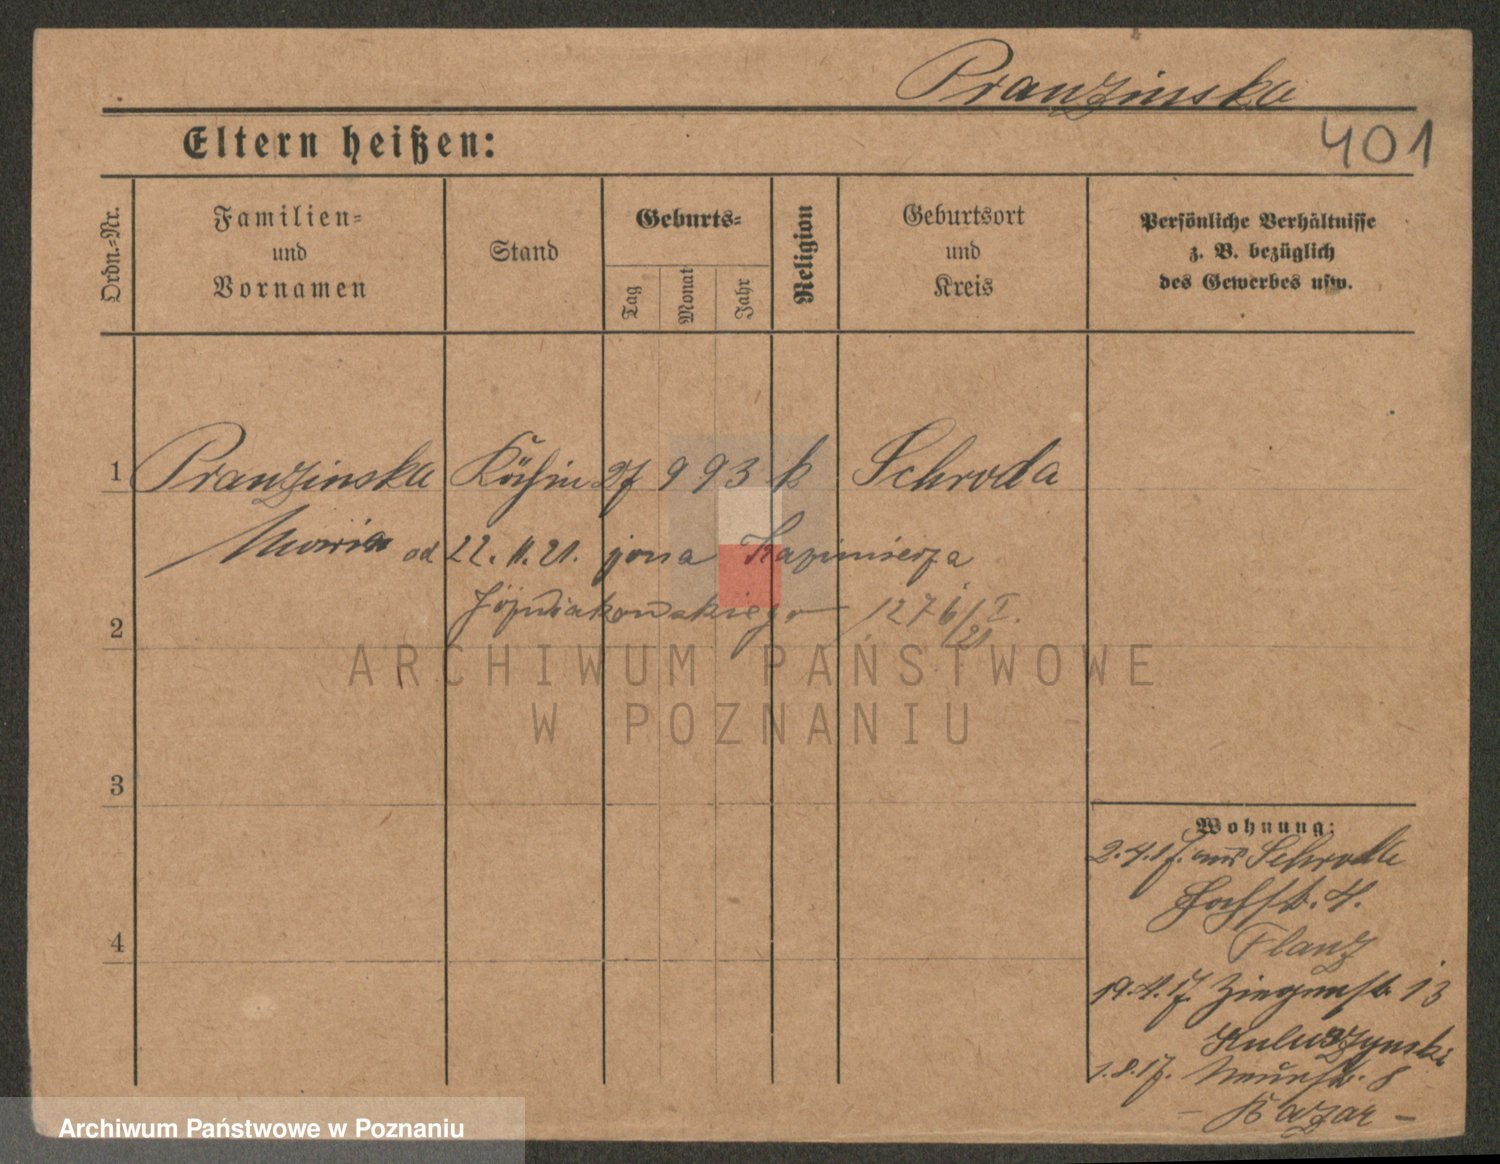 Pranzinska
Eltern heißen:
401
Ordn.=Nr.
Familien=
und
Vornamen
Stand
Geburts=
Tag
Monat
Jahr
Religion
Geburtsort
und
Kreis
Persönliche Verhältnisse
z. B. bezüglich
des Gewerbes usw.
1 Pranzinska Köchin 27 9 93 k Schroda
Maria od 22. 11. 21. żona Kazimierza
2 Jóźwiakowskiego 1276/I.
21
ARCHIWUM PAŃSTWOWE
W POZNANIU
3
Wohnung:
2.4.17. aus Schroda
Hochstr. 4.
4 Flanz
19.4.17. Ziegenstr. 13
1.8.17. Neuestr. 8
- Bazar -
Archiwum Państwowe w Poznaniu